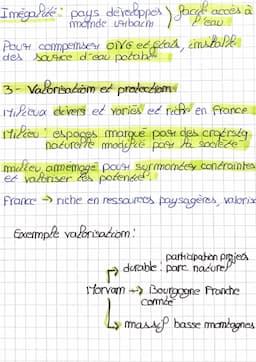 Inégalité: pays développés } facile accès à
monde urbain l'eau
Pour compenser ONG et états, installe
des source d'eau potable
3 - Valorisation et protection
Milieux divers et variés et riche en France
Milieu: espaces marqué par des
naturelle modifié par la société
milieu aménagé pour surmonter contraintes
et valoriser les potentiel.
France → riche en ressources paysagères, valoris
Exemple valorisation:
participation projets
durable: parc naturel
Morvan → Bourgogne Franche
comté
massif basse montagnes